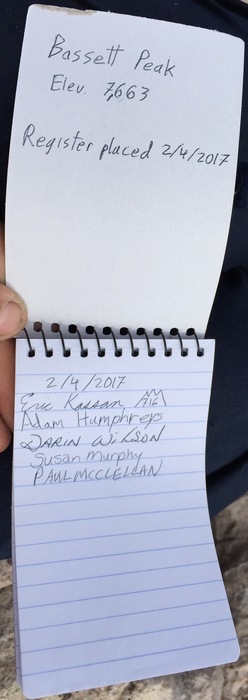 Bassett Peak
Elev. 7,663
Register placed 2/4/2017
2/4/2017
Eric Kassan
Adam Humphreys
DARIN WiLSON
Susan Murphy
PAUL MCCLELLAN